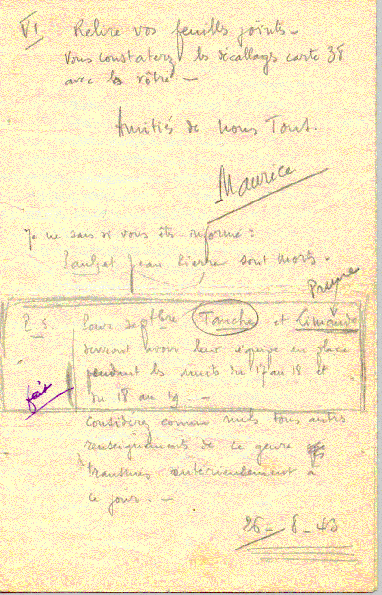 VI Relire vos feuilles joints –
vous constaterez les décallages carte 38
avec la vôtre –
Amitiés de nous Tous.
Maurice
Je ne sais si vous êts informé :
Jean Pierre sont morts.
Prune
P.S. Pour septbre Tanche et Limande
fait
devront avoir leur équipe en place
pendant les nuits du 17 au 18 et
du 18 au 19 . –
considérez comme nuls tous autres
renseignements de ce genre
transmis antérieurement à
ce jour . –
26 – 8 – 43